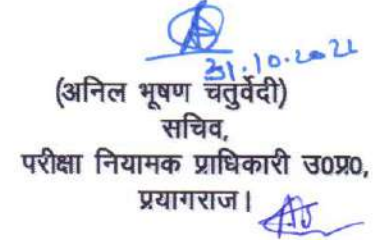 31.10.2022
(अनिल भूषण चतुर्वेदी)
सचिव,
परीक्षा नियामक प्राधिकारी उ0प्र0,
प्रयागराज।